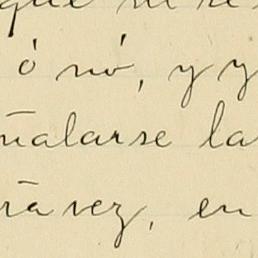 que
ó nó, y y
ñalarse la
ra vez, en